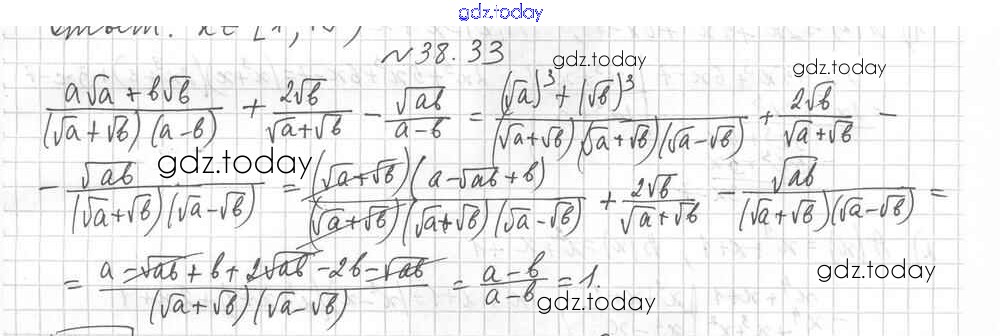 gdz.today
№38.33
gdz.today
gdz.today
(a√a + b√b)/((√a + √b)(a - b)) + 2√b/(√a + √b) - √ab/(a - b) = ((√a)³ + (√b)³)/((√a + √b)(√a + √b)(√a - √b)) + 2√b/(√a + √b) -
gdz.today
- √ab/((√a + √b)(√a - √b)) = ((√a + √b)(a - √ab + b))/((√a + √b)(√a + √b)(√a - √b)) + 2√b/(√a + √b) - √ab/((√a + √b)(√a - √b)) =
= (a - √ab + b + 2√ab - 2b - √ab)/((√a + √b)(√a - √b)) = (a - b)/(a - b) = 1.
gdz.today
gdz.today